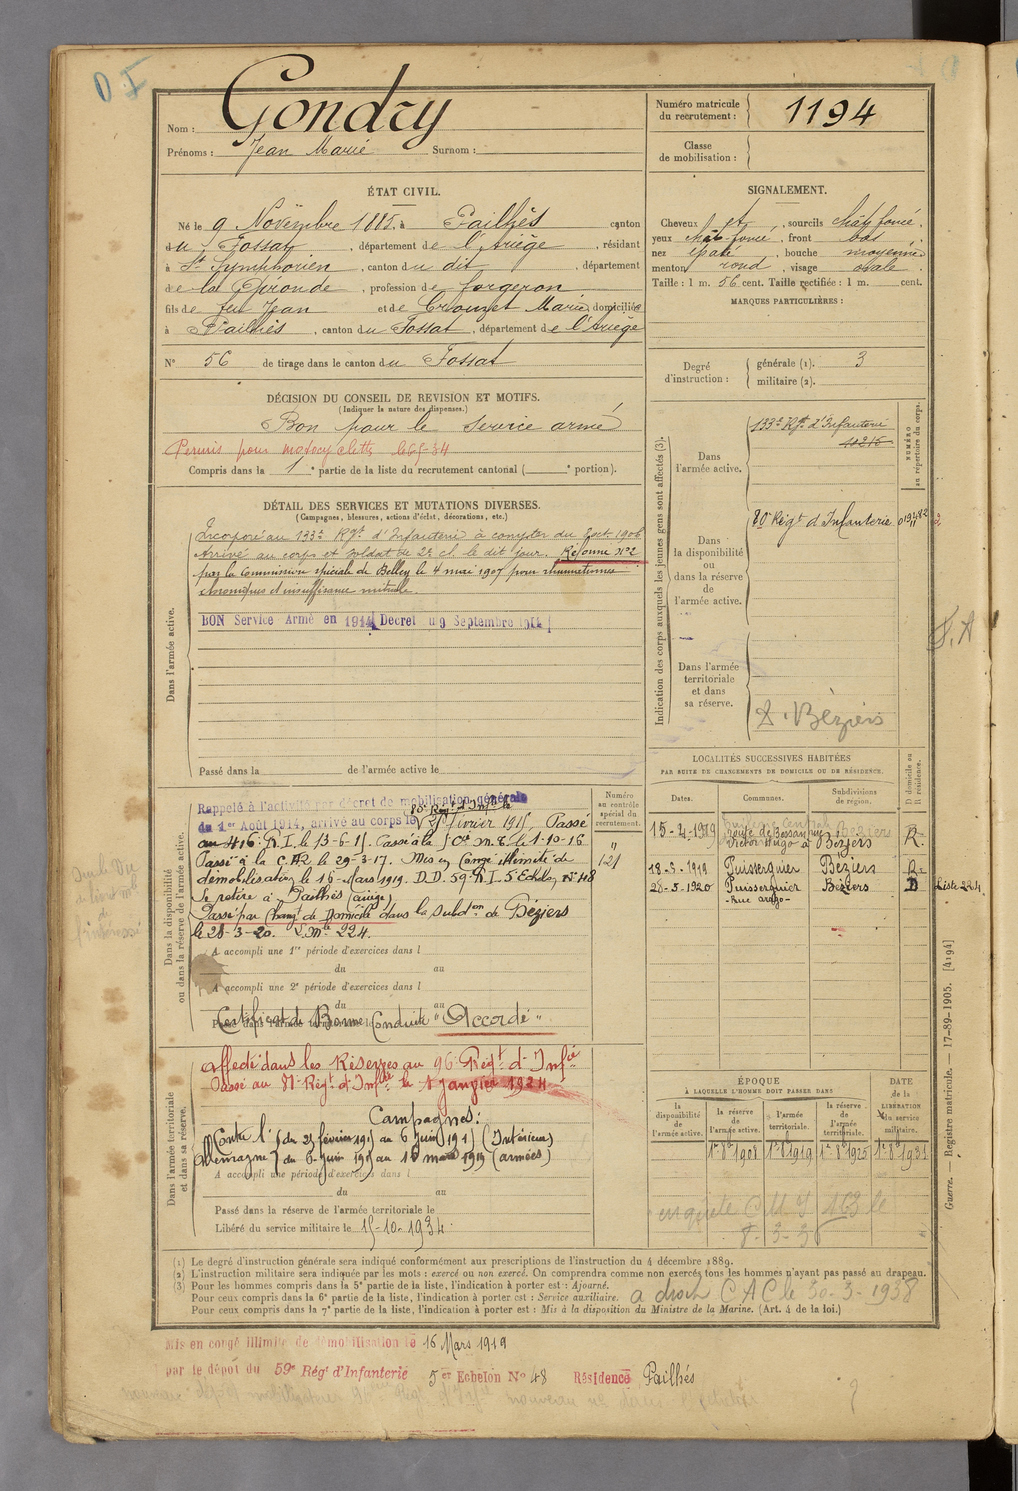 Nom : Gondry
Prénoms : Jean Marie Surnom :
Numéro matricule
du recrutement : 1194
Classe
de mobilisation :
ÉTAT CIVIL.
Né le 9 Novembre 1885, à Pailhès canton
du Fossat, département de l'Ariège, résidant
à St Symphorien, canton du dit, département
de la Gironde, profession de forgeron
fils de feu Jean et de Crouzet Marie, domiciliés
à Pailhès, canton du Fossat, département de l'Ariège
N° 56 de tirage dans le canton du Fossat
SIGNALEMENT.
Cheveux et, sourcils chât foncé,
yeux chât-foncé, front bas,
nez épaté, bouche moyenne,
menton rond, visage ovale.
Taille : 1 m. 56 cent. Taille rectifiée : 1 m. cent.
MARQUES PARTICULIÈRES :
Degré
d'instruction :
générale (1). 3
militaire (2).
DÉCISION DU CONSEIL DE REVISION ET MOTIFS.
(Indiquer la nature des dispenses.)
Bon pour le Service armé
Permis pour motocyclette
Compris dans la 1e partie de la liste du recrutement cantonal ( e portion).
DÉTAIL DES SERVICES ET MUTATIONS DIVERSES.
(Campagnes, blessures, actions d'éclat, décorations, etc.)
Dans l'armée active.
Incorporé au 133e Rgt d'Infanterie à compter du 8 oct. 1906
Arrivé au corps et soldat de 2e cl. le dit jour. Réformé N°2
par la Commission spéciale de Belley le 4 mai 1907 pour rhumatismes
chroniques et insuffisance mitrale.
BON Service Armé en 1914 Decret du 9 Septembre 1914
Passé dans la de l'armée active le
Indication des corps auxquels les jeunes gens sont affectés (3).
NUMÉRO
au répertoire du corps.
Dans
l'armée active.
133e Rgt d'Infanterie
10215
Dans
la disponibilité
ou
dans la réserve
de
l'armée active.
80e Régt d'Infanterie
Dans l'armée
territoriale
et dans
sa réserve.
D. Béziers
S. A
LOCALITÉS SUCCESSIVES HABITÉES
PAR SUITE DE CHANGEMENTS DE DOMICILE OU DE RÉSIDENCE.
Dates. Communes. Subdivisions
de région. D domicile ou
R résidence.
15-4-1919 Route de Bessan rue
Victor Hugo à Béziers Béziers R.
18-3-1919 Puisserguier Béziers R.
28-3-1920 Puisserguier Béziers D Liste 224
- Rue arago -
Dans la disponibilité
ou dans la réserve de l'armée active.
Numéro
au contrôle
spécial du
recrutement.
121
Rappelé à l'activité par décret de mobilisation générale
du 1er Août 1914, arrivé au corps le 80e Régt d'Infie le 25 février 1915, Passé
au 416e R.I. le 13-6-15. Passé à la 5e Cie M. le 1-10-16
Passé à la C.H.R le 29-3-17. Mis en Congé illimité de
démobilisation le 16 Mars 1919. D.D. 59e R.I. 5e Echelon, N° 48
Se retire à Pailhès (ariège)
Passé par Changt de Domicile dans la Subdon de Béziers
le 28-3-20. L Mle 224.
A accompli une 1re période d'exercices dans l
du au
A accompli une 2e période d'exercices dans l
du au
Certificat de Bonne Conduite "Accordé"
Dans l'armée territoriale
et dans sa réserve.
affecté dans les Réserves au 96e Régt d'Infie
Passé au 81e Régt d'Infie le 1 janvier 1924
Campagnes :
Contre l' du 25 février 1915 au 6 juin 1915 (Intérieur)
Allemagne du 6 juin 1915 au 16 mars 1919 (armées)
A accompli une période d'exercices dans l
du au
Passé dans la réserve de l'armée territoriale le
Libéré du service militaire le 15-10-1934.
ÉPOQUE
À LAQUELLE L'HOMME DOIT PASSER DANS
DATE
de la
LIBÉRATION
du service
militaire.
la
disponibilité
de
l'armée active.
la réserve
de
l'armée active.
l'armée
territoriale.
la réserve
de
l'armée
territoriale.
1er 8bre 1908 1er 8bre 1919 1er 8bre 1925 1er 8bre 1931
enquête C M 7 163 le
8-3-36
(1) Le degré d'instruction générale sera indiqué conformément aux prescriptions de l'instruction du 4 décembre 1889.
(2) L'instruction militaire sera indiquée par les mots : exercé ou non exercé. On comprendra comme non exercés tous les hommes n'ayant pas passé au drapeau.
(3) Pour les hommes compris dans la 5e partie de la liste, l'indication à porter est : Ajourné.
Pour ceux compris dans la 6e partie de la liste, l'indication à porter est : Service auxiliaire.
Pour ceux compris dans la 7e partie de la liste, l'indication à porter est : Mis à la disposition du Ministre de la Marine. (Art. 4 de la loi.)
a droit C A C le 30-3-1938
Guerre. — Registre matricule. — 17-89-1905. [4194]
Mis en congé illimité de démobilisation le 16 Mars 1919
par le dépôt du 59e Régt d'Infanterie 5er Echelon N° 48 Résidence Pailhés